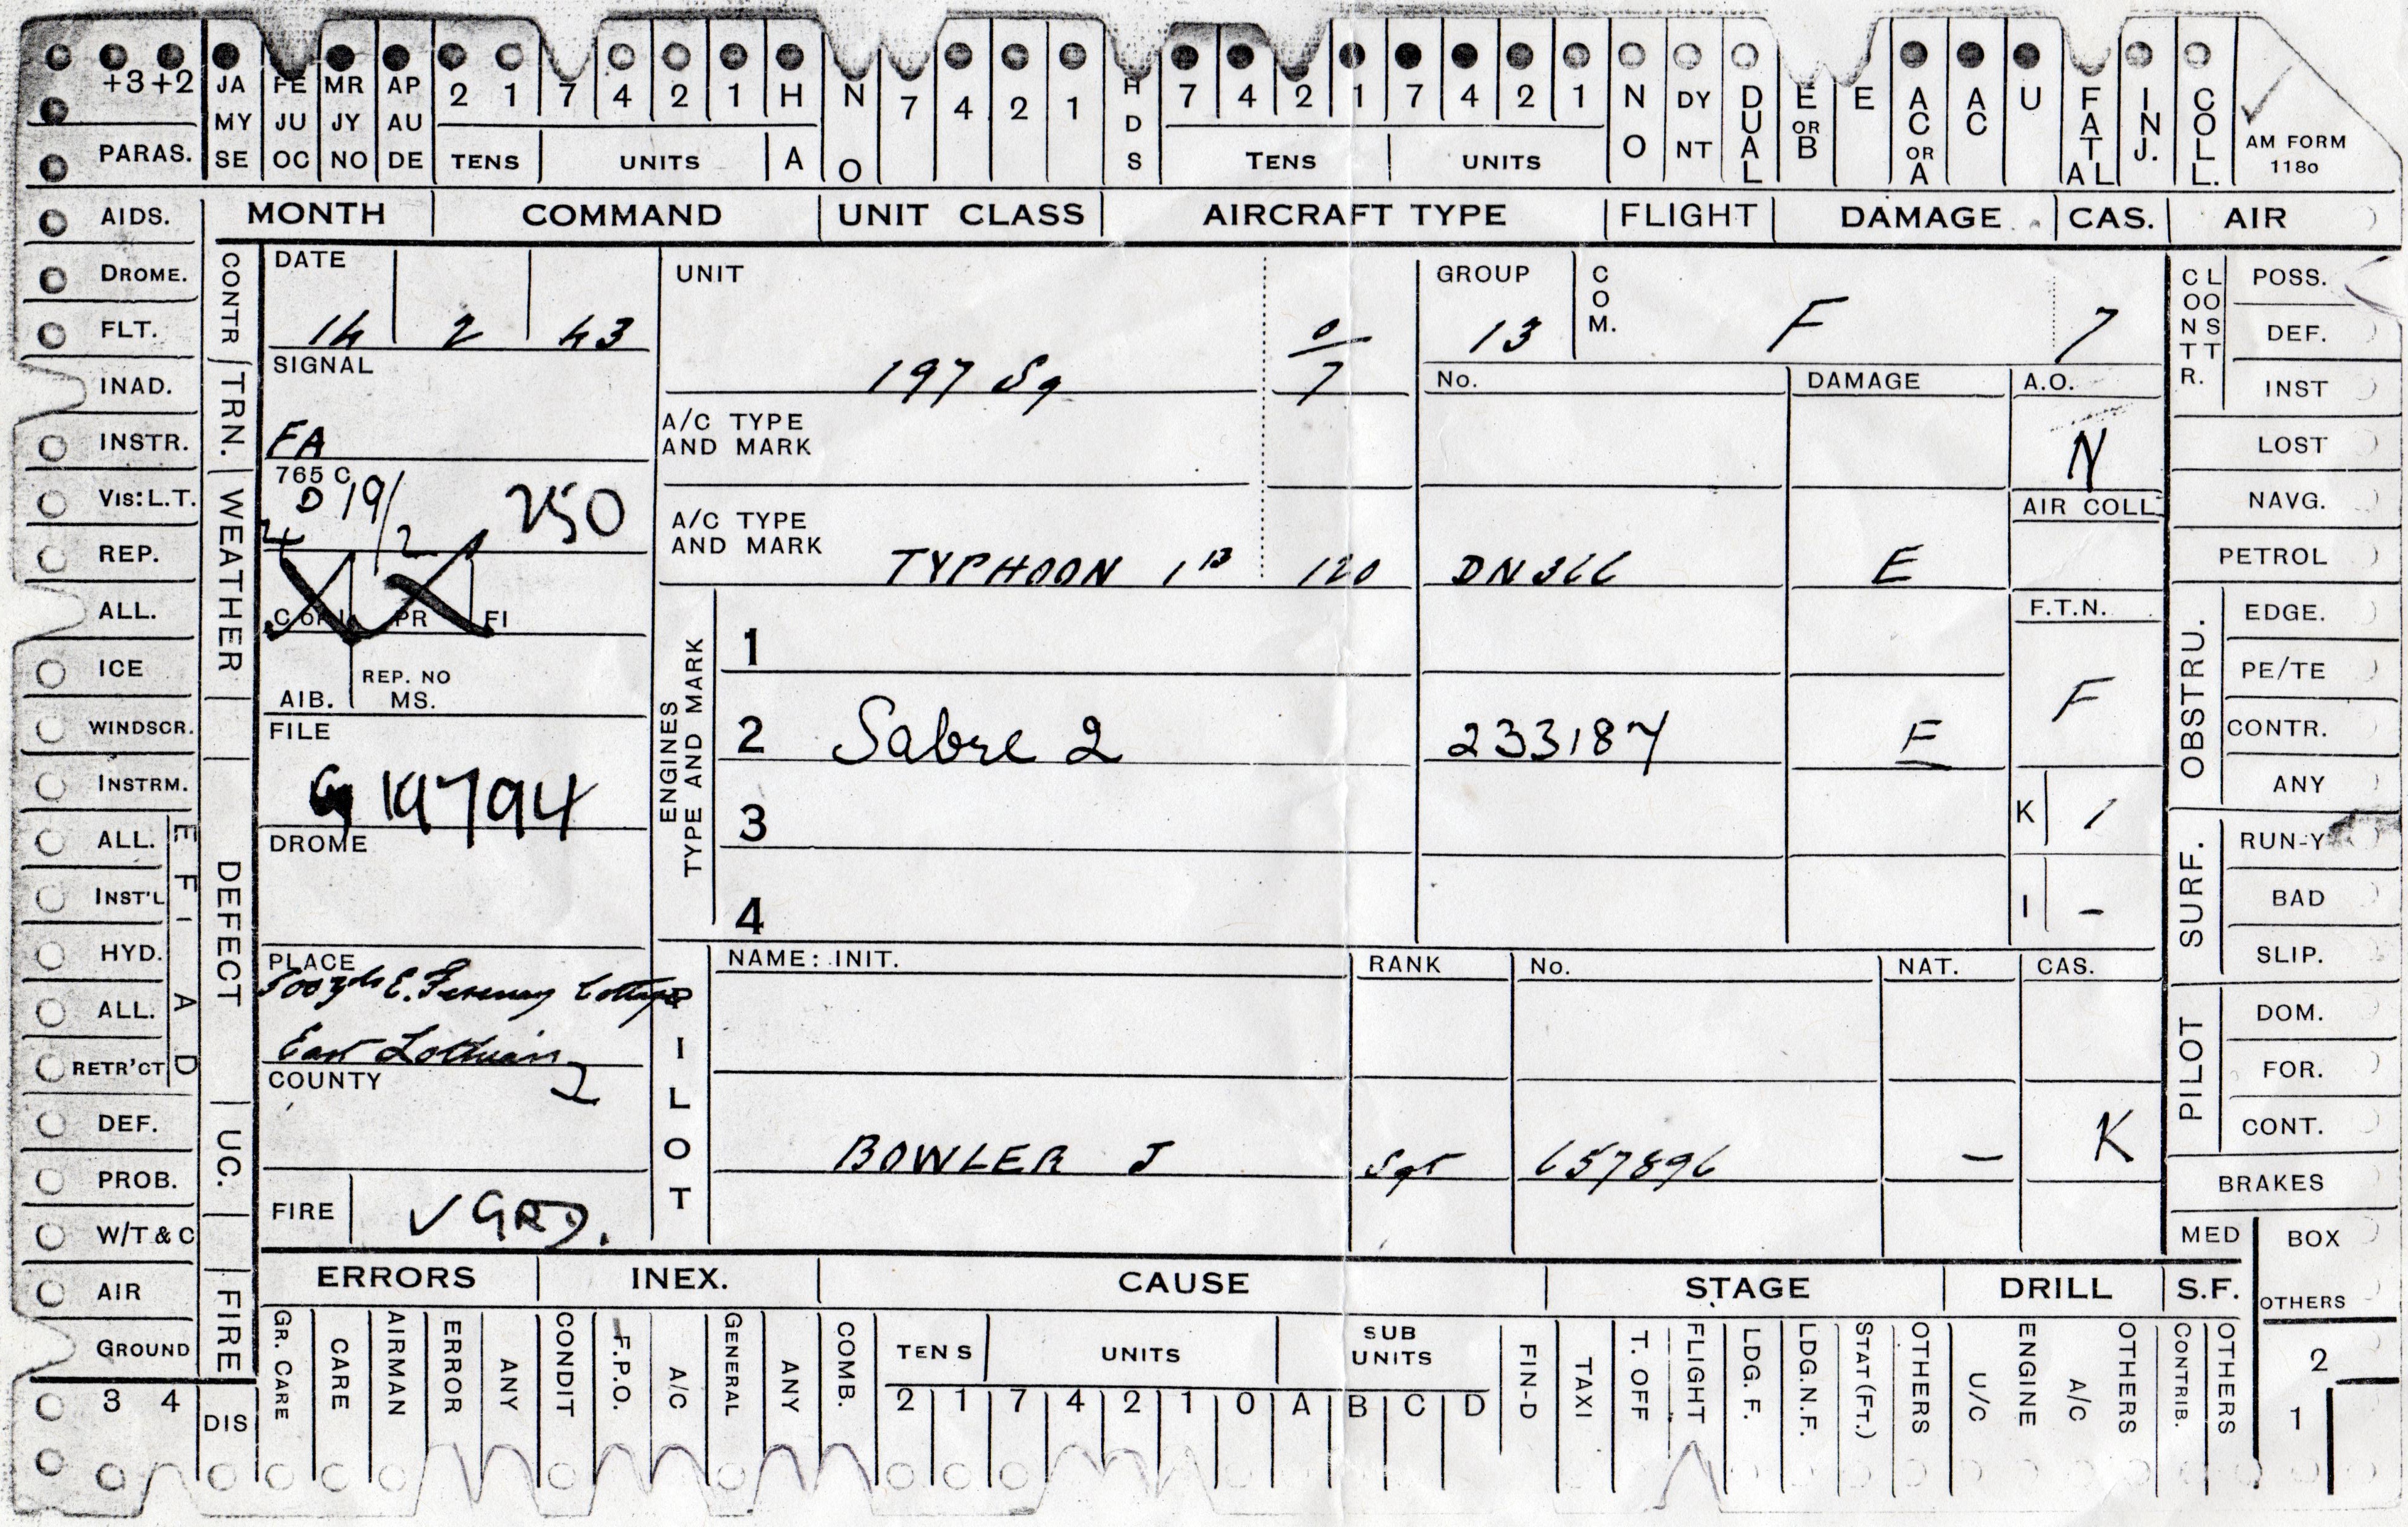 +3 +2 JA FE MR AP 2 1 7 4 2 1 H N 7 4 2 1 H 7 4 2 1 7 4 2 1 N DY D E E A A U F I C
MY JU JY AU D U OR C C A N O
PARAS. SE OC NO DE TENS UNITS A O S TENS UNITS O NT A L B OR A T A L J. L L. AM FORM 1180
AIDS. MONTH COMMAND UNIT CLASS AIRCRAFT TYPE FLIGHT DAMAGE CAS. AIR
DROME. CONTR DATE UNIT GROUP COM. CONTR. LOST POSS.
FLT. 14 2 43 0/7 13 F 7 DEF.
INAD. TRN. SIGNAL 197 Sq No. DAMAGE A.O. INST
INSTR. FA A/C TYPE AND MARK N LOST
VIS: L.T. WEATHER 765 C D 19/2 250 A/C TYPE AND MARK AIR COLL. NAVG.
REP. TYPHOON 1B 120 DN366 E PETROL
ALL. PR FI ENGINES TYPE AND MARK 1 F.T.N. OBSTRU. EDGE.
ICE AIB. REP. NO MS. F PE/TE
WINDSCR. FILE 2 Sabre 2 233187 E CONTR.
INSTRM. 19794 K 1 ANY
ALL. E F I DEFECT DROME 3 SURF. RUN-Y
INST'L 4 I - BAD
HYD. A D PLACE PILOT NAME: INIT. RANK No. NAT. CAS. SLIP.
ALL. 500 yds E. Cottage PILOT DOM.
RETR'CT East Lothian 2 FOR.
DEF. UC. COUNTY CONT.
PROB. BOWLER J Sgt 657896 — K BRAKES
W/T & C FIRE ✓ GRD. MED BOX
AIR FIRE ERRORS INEX. CAUSE STAGE DRILL S.F. OTHERS
GROUND GR. CARE CARE AIRMAN ERROR ANY CONDIT F.P.O. A/C GENERAL ANY COMB. TENS UNITS SUB UNITS FIN-D TAXI T. OFF FLIGHT LDG. F. LDG. N.F. STAT (FT.) OTHERS U/C ENGINE A/C OTHERS CONTRIB. OTHERS 2
3 4 DIS 2 1 7 4 2 1 0 A B C D 1